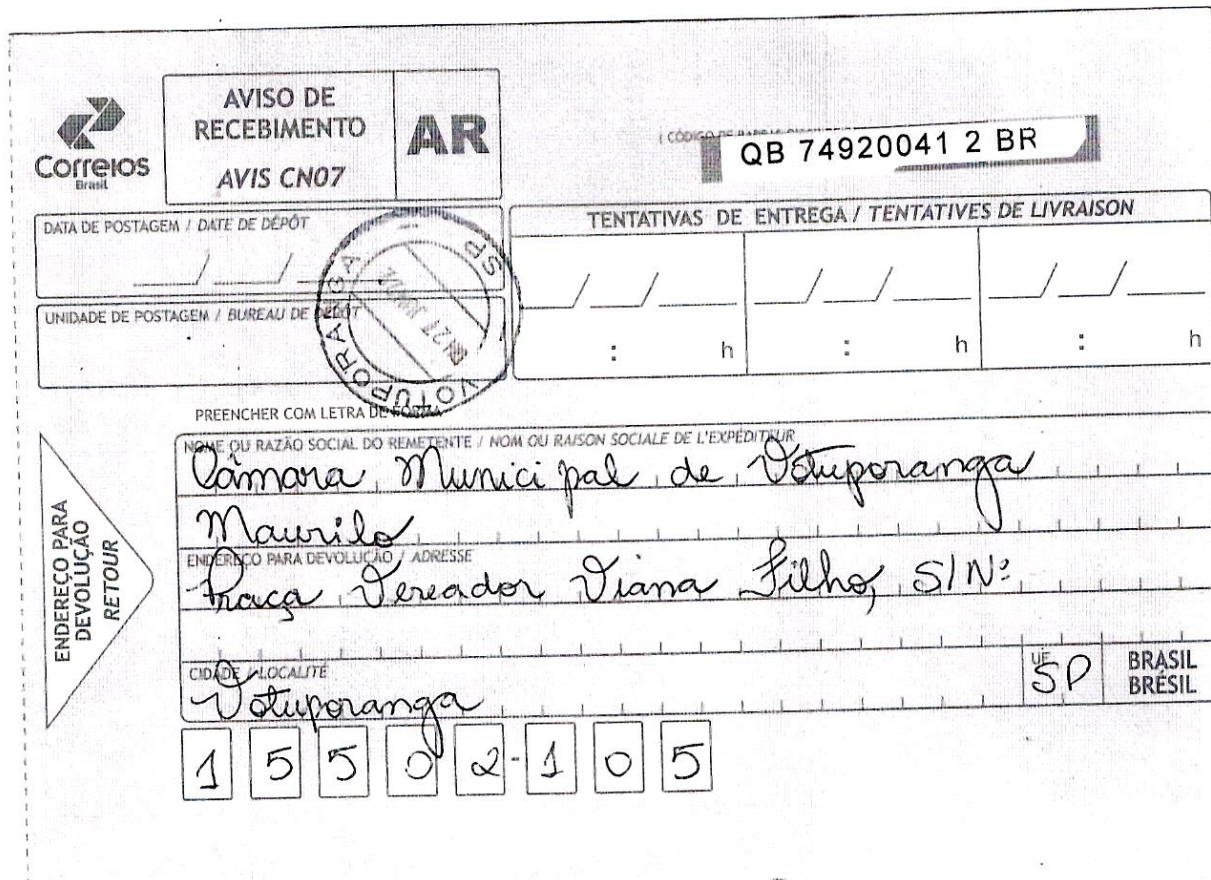 Correios
Brasil
AVISO DE
RECEBIMENTO
AVIS CN07
AR
QB 74920041 2 BR
DATA DE POSTAGEM / DATE DE DÉPÔT
UNIDADE DE POSTAGEM / BUREAU DE DÉPÔT
VOTUPORANGA SP
TENTATIVAS DE ENTREGA / TENTATIVES DE LIVRAISON
: h
: h
: h
PREENCHER COM LETRA DE FORMA
ENDEREÇO PARA
DEVOLUÇÃO
RETOUR
NOME OU RAZÃO SOCIAL DO REMETENTE / NOM OU RAISON SOCIALE DE L'EXPÉDITEUR
Câmara Municipal de Votuporanga
Maurilo
ENDEREÇO PARA DEVOLUÇÃO / ADRESSE
Praça Vereador Viana Filho, S/Nº
CIDADE / LOCALITÉ
Votuporanga
UF
SP
BRASIL
BRÉSIL
15502-105